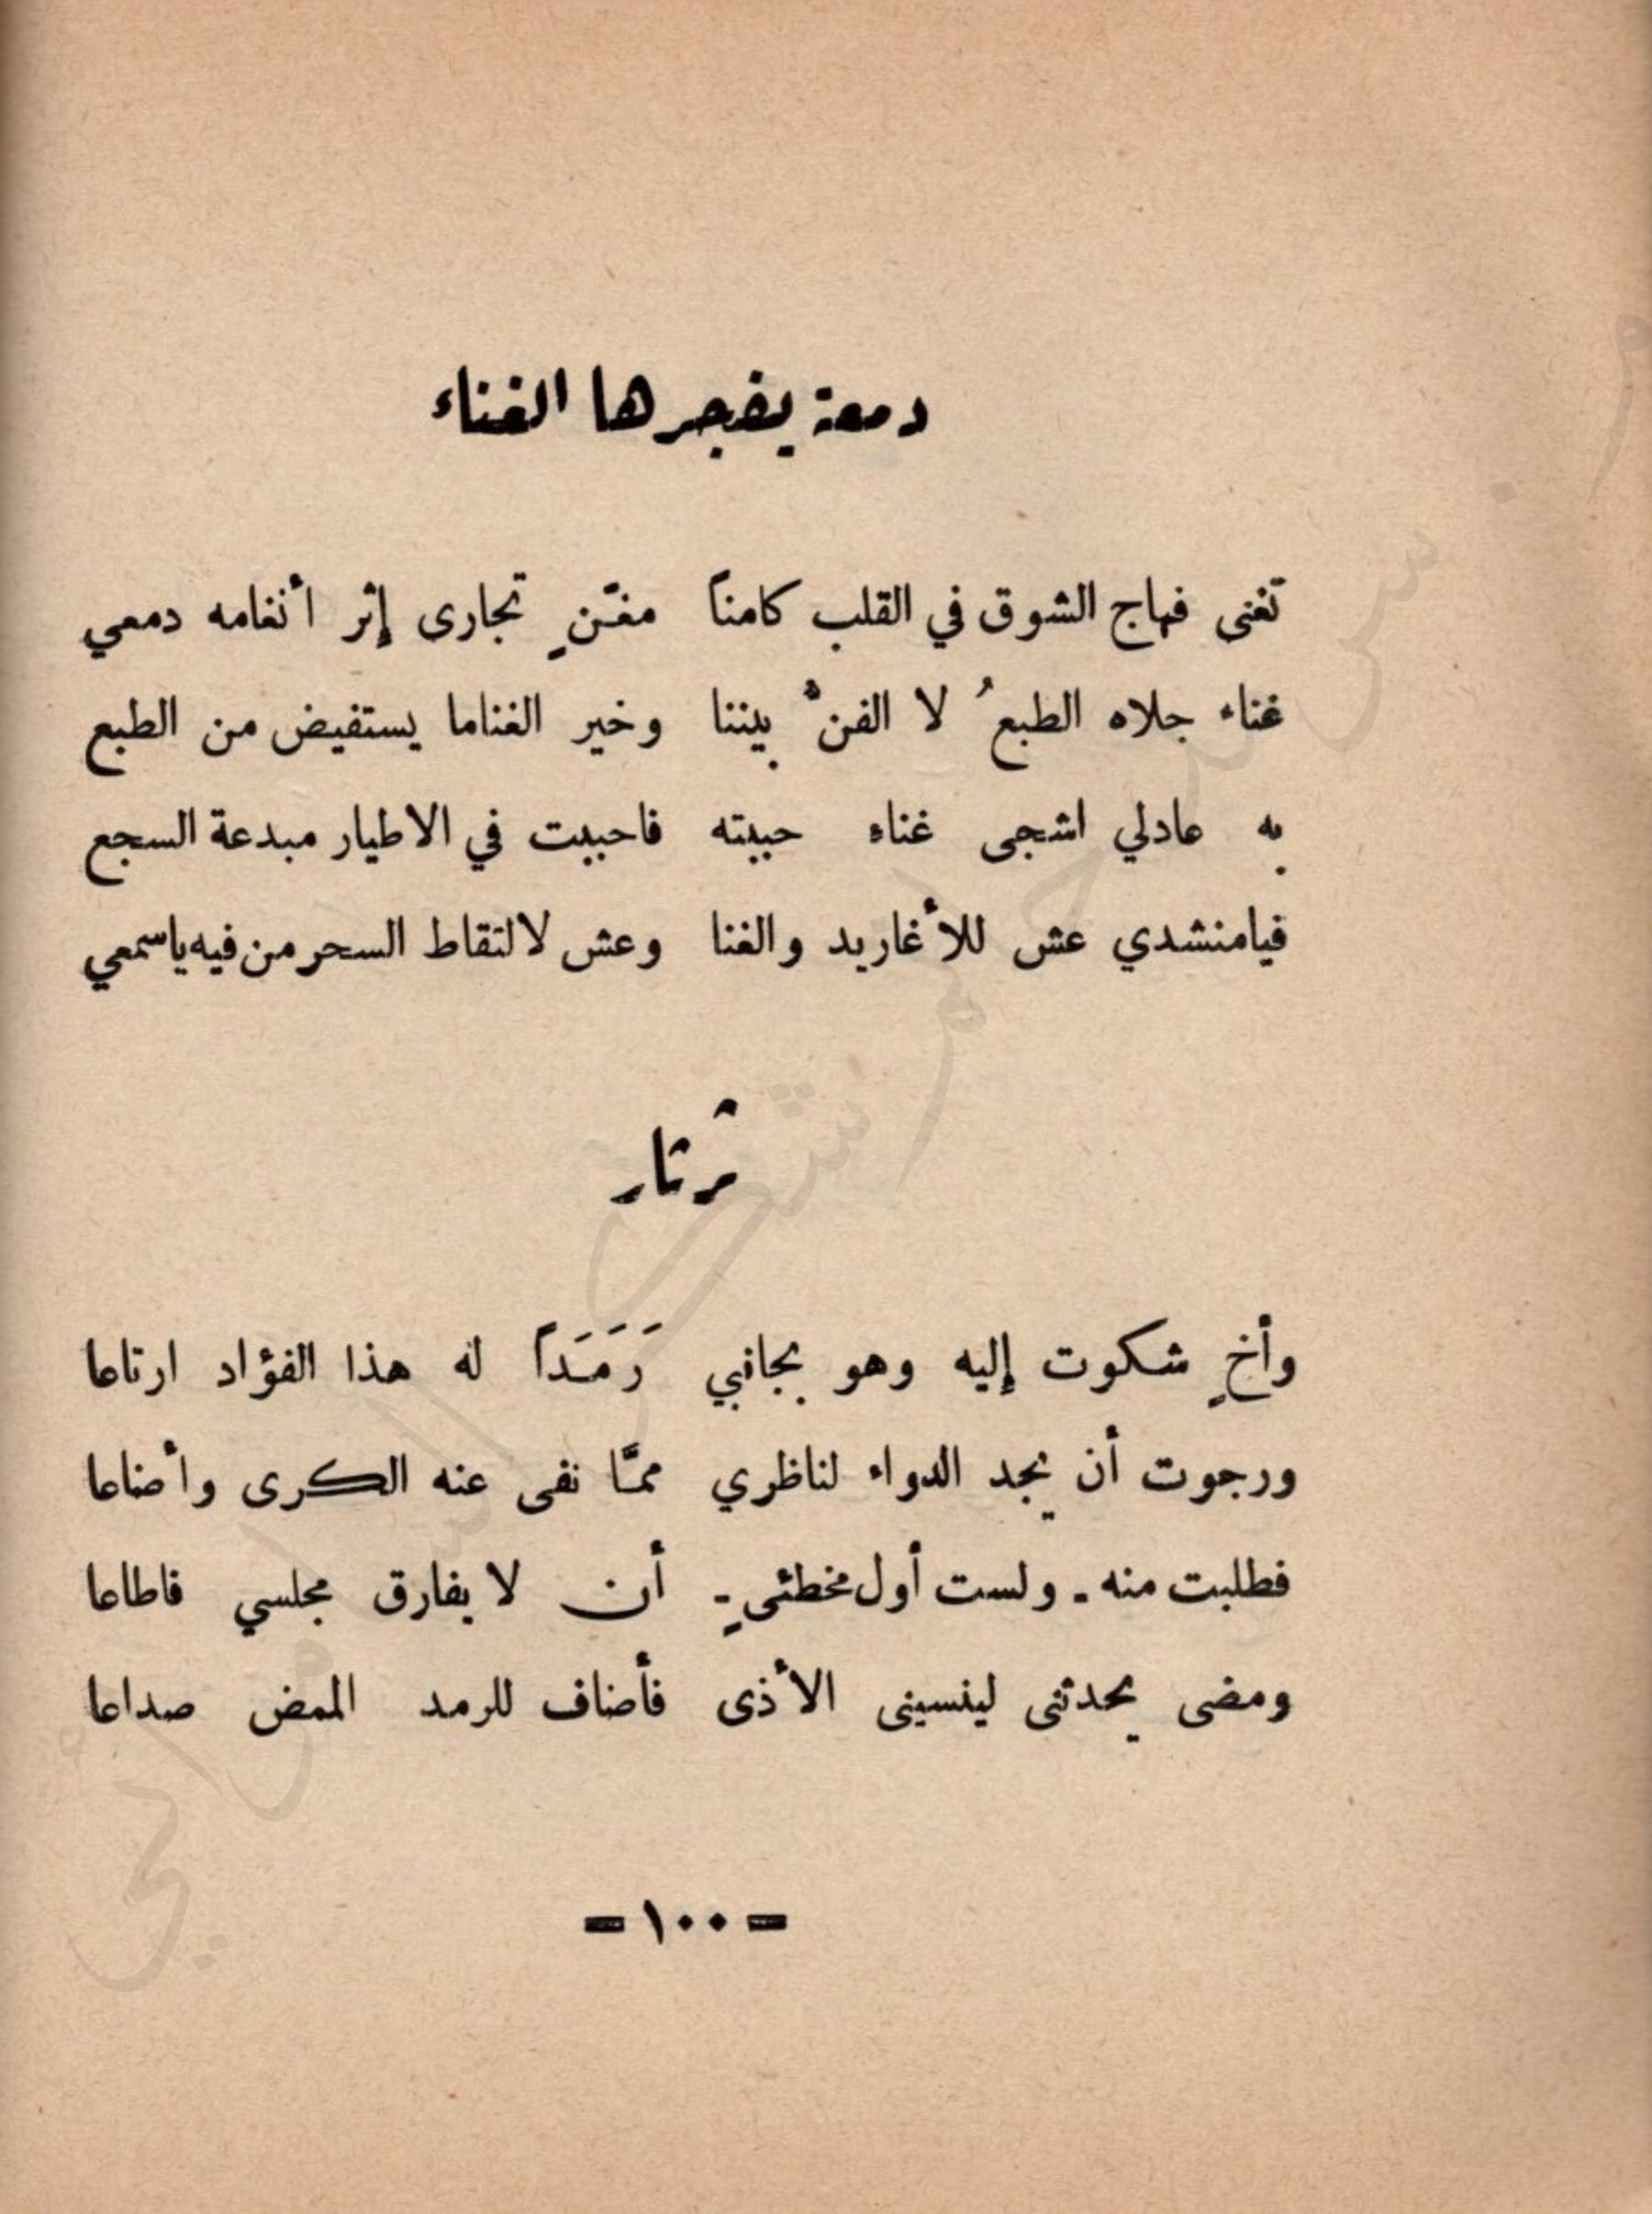 دمعة يفجرها الغناء
تغنى فهاج الشوق في القلب كامناً مغنٍّ تجارى إثر أنغامه دمعي
غناء جلاه الطبعُ لا الفنُّ بيننا وخير الغناما يستفيض من الطبع
به عادلي اشجى غناءٍ حبيته فاحييت في الاطيار مبدعة السجع
فيامنشدي عش للأغاريد والغنا وعش لالتقاط السحر من فيه ياسمعي
ثرثار
وأخٍ شكوت إليه وهو بجانبي رَمَدَاً له هذا الفؤاد ارتاعا
ورجوت أن يجد الدواء لناظري ممَّا نفى عنه الكرى وأضاعا
فطلبت منه - ولست أول مخطئىٍ - أن لا يفارق مجلسي فاطاعا
ومضى يحدثنى لينسينى الأذى فأضاف للرمد الممض صداعا
- ١٠٠ -